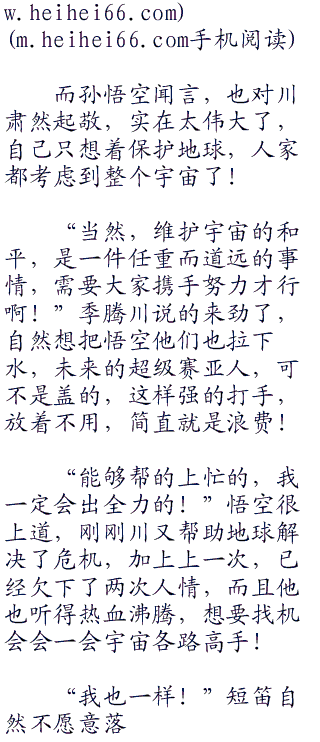 w.heihei66.com)
(m.heihei66.com手机阅读)
而孙悟空闻言，也对川
肃然起敬，实在太伟大了，
自己只想着保护地球，人家
都考虑到整个宇宙了！
“当然，维护宇宙的和
平，是一件任重而道远的事
情，需要大家携手努力才行
啊！”季腾川说的来劲了，
自然想把悟空他们也拉下
水，未来的超级赛亚人，可
不是盖的，这样强的打手，
放着不用，简直就是浪费！
“能够帮的上忙的，我
一定会出全力的！”悟空很
上道，刚刚川又帮助地球解
决了危机，加上上一次，已
经欠下了两次人情，而且他
也听得热血沸腾，想要找机
会会一会宇宙各路高手！
“我也一样！”短笛自
然不愿意落